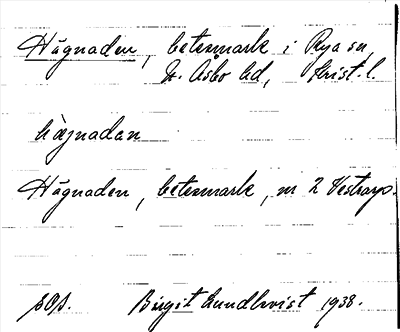 Hägnaden, betesmark i Rya sn,
N. Åsbo hd, Krist. l.
hägnadan
Hägnaden, betesmark, nr 2 Västrarp.
pop. Birgit Lundkvist 1938.